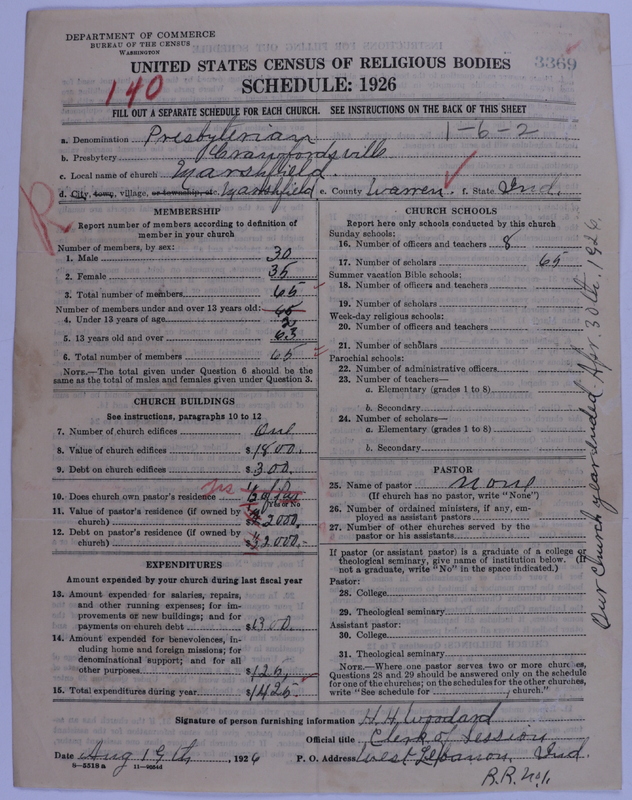 DEPARTMENT OF COMMERCE
BUREAU OF THE CENSUS
WASHINGTON
UNITED STATES CENSUS OF RELIGIOUS BODIES
3369
140
SCHEDULE: 1926
FILL OUT A SEPARATE SCHEDULE FOR EACH CHURCH. SEE INSTRUCTIONS ON THE BACK OF THIS SHEET
a. Denomination Presbyterian 1-6-2
b. Presbytery Crawfordsville
c. Local name of church Marshfield.
d. City, town, village, or township, etc. Marshfield e. County Warren. f. State Ind.
R
MEMBERSHIP
Report number of members according to definition of
member in your church
Number of members, by sex:
1. Male 30
2. Female 35
3. Total number of members 65
Number of members under and over 13 years old: 65
4. Under 13 years of age 2
5. 13 years old and over 63
6. Total number of members 65
NOTE.—The total given under Question 6 should be
the same as the total of males and females given under Question 3.
CHURCH BUILDINGS
See instructions, paragraphs 10 to 12
7. Number of church edifices One
8. Value of church edifices $1800.
9. Debt on church edifices $300.
10. Does church own pastor's residence yes
Yes or No
11. Value of pastor's residence (if owned by
church) $2000.
12. Debt on pastor's residence (if owned by
church) $2000.
EXPENDITURES
Amount expended by your church during last fiscal year
13. Amount expended for salaries, repairs,
and other running expenses; for im-
provements or new buildings; and for
payments on church debt $1300
14. Amount expended for benevolences, in-
cluding home and foreign missions; for
denominational support; and for all
other purposes $125.
15. Total expenditures during year $1425.
CHURCH SCHOOLS
Report here only schools conducted by this church
Sunday schools:
16. Number of officers and teachers 8
17. Number of scholars 65
Summer vacation Bible schools:
18. Number of officers and teachers
19. Number of scholars
Week-day religious schools:
20. Number of officers and teachers
21. Number of scholars
Parochial schools:
22. Number of administrative officers
23. Number of teachers—
a. Elementary (grades 1 to 8)
b. Secondary
24. Number of scholars—
a. Elementary (grades 1 to 8)
b. Secondary
PASTOR
25. Name of pastor none
(If church has no pastor, write "None")
26. Number of ordained ministers, if any, em-
ployed as assistant pastors
27. Number of other churches served by the
pastor or his assistants
If pastor (or assistant pastor) is a graduate of a college or
theological seminary, give name of institution below. (If
not a graduate, write "No" in the space indicated.)
Pastor:
28. College
29. Theological seminary
Assistant pastor:
30. College
31. Theological seminary
NOTE.—Where one pastor serves two or more churches,
Questions 28 and 29 should be answered only on the schedule
for one of the churches; on the schedules for the other churches,
write "See schedule for church."
Our Church year ended Apr. 30th. 1926.
Signature of person furnishing information H. H. Woodard
Official title Clerk of Session
Date Aug 19th, 1926 P. O. Address West Lebanon, Ind.
8-5518a
R.R. No 1.